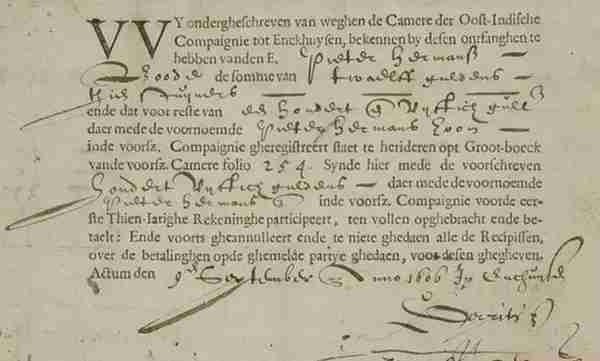 VVY ondergheschreven van weghen de Camere der Oost-Indische
Compaignie tot Enckhuysen, bekennen by desen ontfanghen te
hebben vanden E. Pieter Hermansz
Boode de somme van twaelff guldens
thien stuyvers
ende dat voor reste van een hondert vyftich
daer mede de voornoemde Pieter Hermans zoon
inde voorsz. Compaignie gheregistreert staet te herideren opt Groot-boeck
vande voorsz. Camere folio 254. Synde hier mede de voorschreven
hondert vyftich guldens daer mede de voornoemde
Pieter Hermans inde voorsz. Compaignie voor de eer-
ste Thien-Iarighe Rekeninghe participeert, ten vollen opghebracht ende be-
taelt: Ende voorts gheannulleert ende te niete ghedaen alle de Recipissen,
over de betalinghen opde ghemelde partye ghedaen, voor desen ghegheven.
Actum den 9en September Anno 1606 In Enchuysen